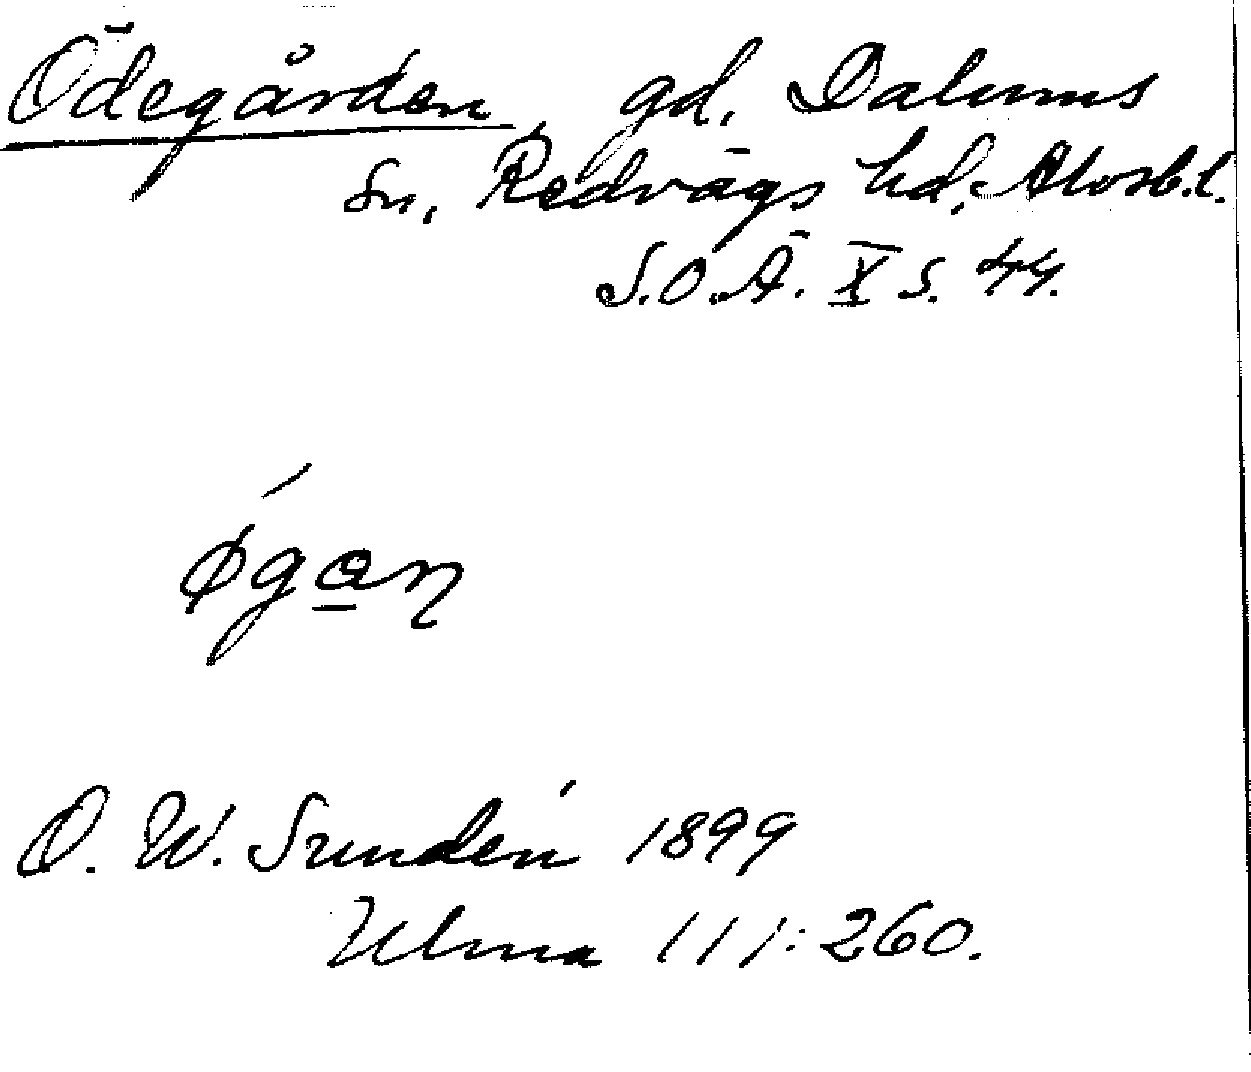 Ödegården gd. Dalums
sn, Redvägs hd, Älvsb.l.
S.O.Ä. X s. 44.
øgan
D. W. Sundén 1899
Ulma 111:260.